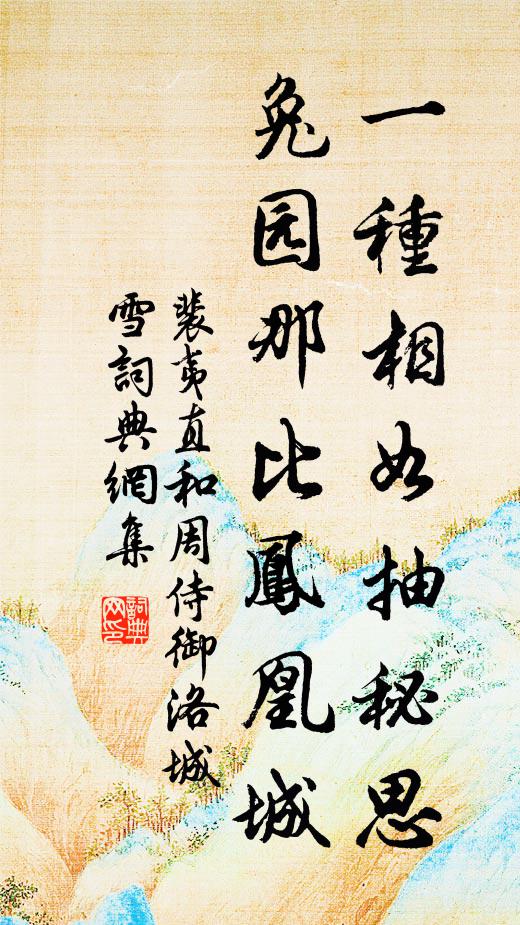 一種相如抽秘思
兔园那比鳳凰城
裴夷直和周侍御洛城
雪詞典網集
詞典网印